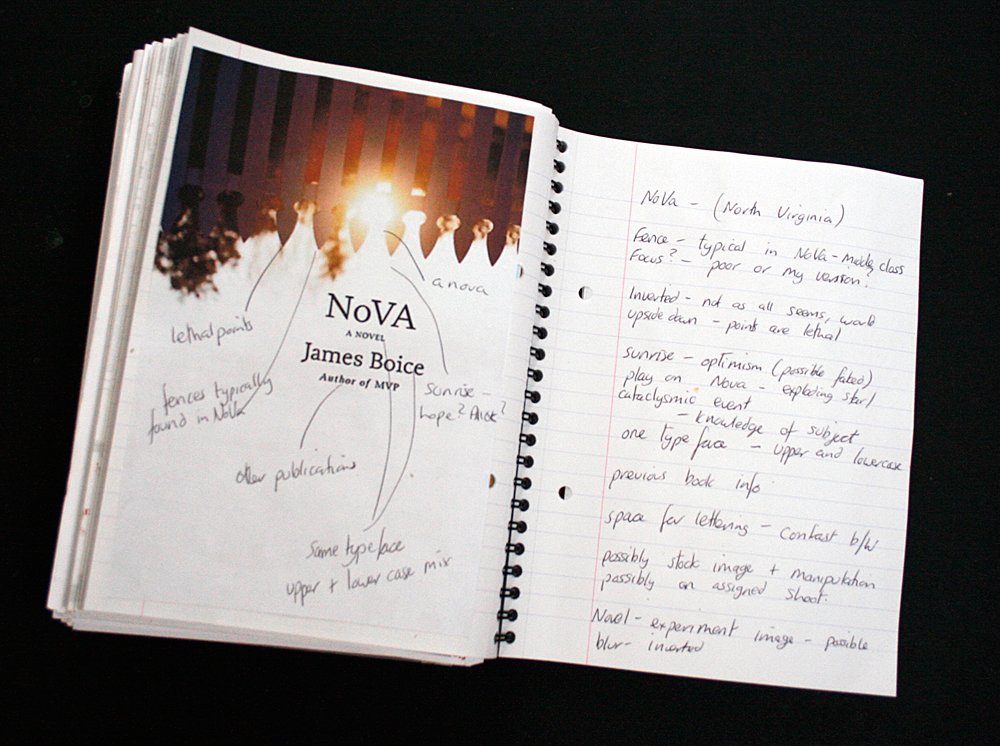 a nova
NoVA
A NOVEL
James Boice
Author of MVP
lethal points
fences typically
found in NoVa
sunrise –
hope?
other publications
Same typeface
upper + lower case mix
NoVa – (North Virginia)
Fence – typical in NoVa – middle class
Focus? – poor or my version?
Inverted – not as all seems, world
upside down – points are lethal
sunrise – optimism (possible fated)
play on Nova – exploding star/
cataclysmic event
– knowledge of subject
one type face – upper and lowercase
previous book info
space for lettering – Contast b/w
possibly stock image + manipulation
possibly an assigned shoot.
Novel – experiment image – possible
blur – inverted